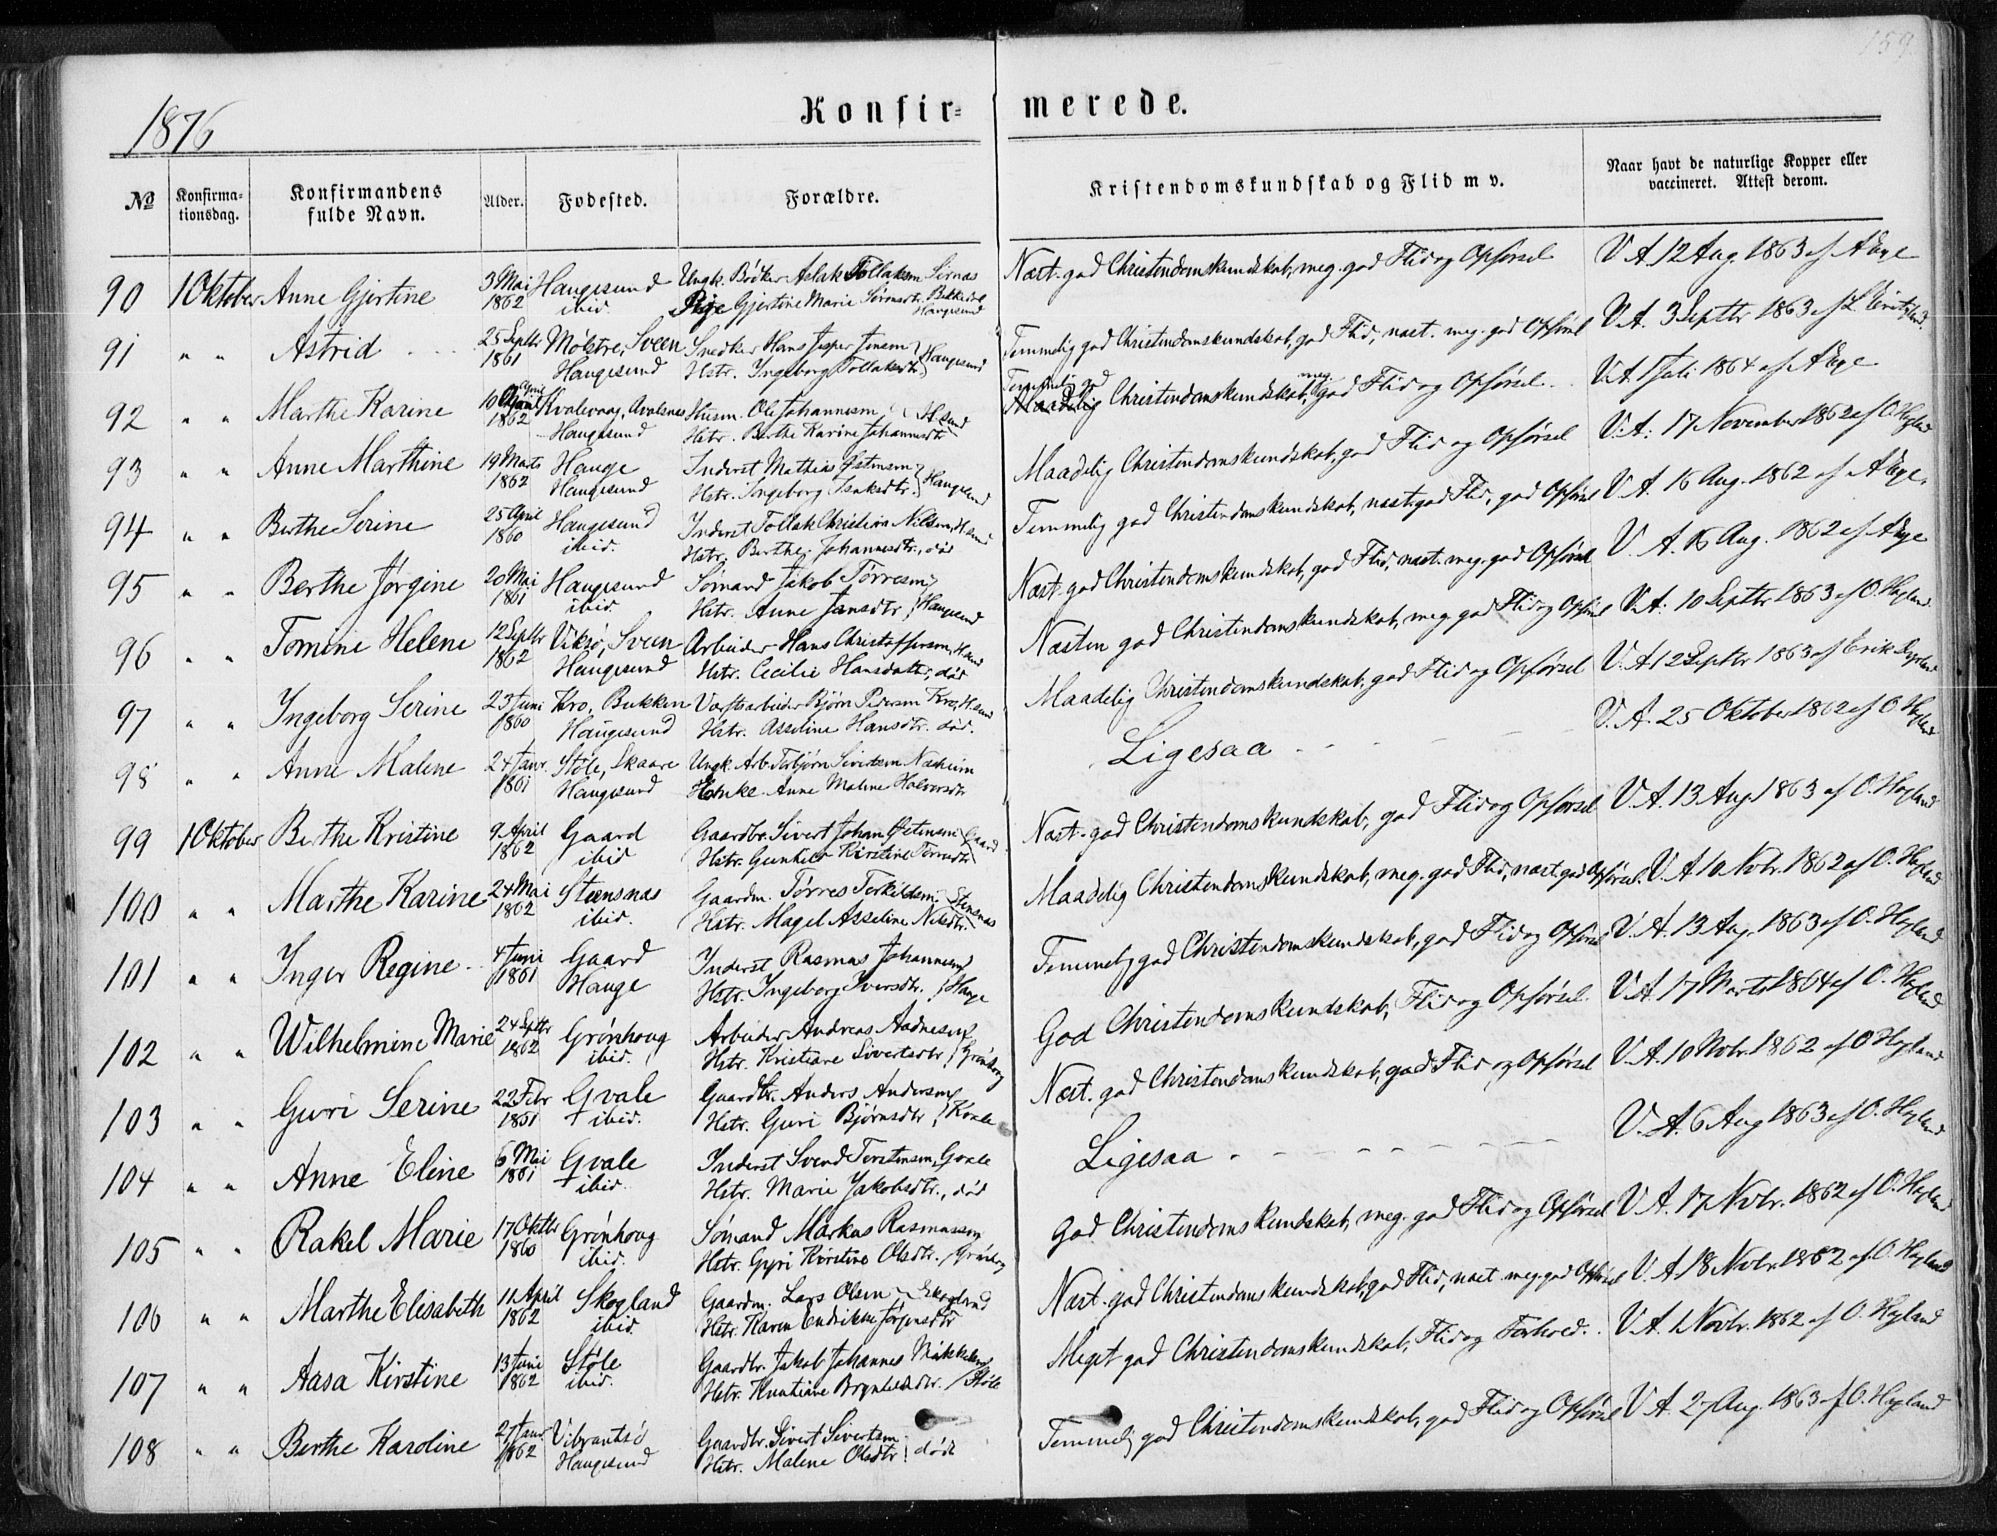 159.
1876
Konfir- merede.
№ Konfirma- tionsdag. Konfirmandens fulde Navn. Alder. Fødested. Forældre. Kristendomskundskab og Flid m v. Naar havt de naturlige Kopper eller vaccineret. Attest derom.
90 1 Oktober Anne Gjertine 3 Mai Haugesund Ungk. Bødker Aslak Tollaksen Næst. god Christendomskundskab, meg. god Flid og Opførsel V. A. 12 Aug. 1863 af
1862 ibid. Pige Gjertine Marie Haugesund
91 " " Astrid 25 Septbr Mølstre, Sveen Snedker Hans Jesper Jensen Temmelig god Christendomskundskab, god Flid, næst. meg. god Opførsel V. A. 3 Septbr 1863 af
1861 Haugesund Hstr. Ingeborg Tollaksdtr. Haugesund
92 " " Marthe Karine 10 April Kvalevaag, Avalsnes Husm. Ole Johannesen Temmelig god Christendomskundskab, meg. god Flid og Opførsel V. A. 1 Juli 1864 af
1862 Haugesund Hstr. Berthe Karine Johannesdtr H.sund
93 " " Anne Marthine 19 Marts Hauge Inderst Mathias Østensen Maadelig Christendomskundskab, god Flid og Opførsel V. A. 17 November 1862 af O. Høyland
1862 Haugesund Hstr. Ingeborg Isaksdtr. Haugesund
94 " " Berthe Serine 25 April Haugesund Inderst Tollak Christian Nilsen, H.sund Temmelig god Christendomskundskab, næst. god Flid, god Opførsel V. A. 16 Aug. 1862 af
1860 ibid. Hstr. Berthe Johannesdtr., død
95 " " Berthe Jørgine 20 Mai Haugesund Sømand Jakob Tørresen Næst. god Christendomskundskab, god Flid, næst. meg. god Opførsel V. A. 16 Aug. 1862 af
1861 ibid. Hstr. Anne Jansdtr, Haugesund
96 " " Tomine Helene 12 Septbr Vikse, Sveen Arbeider Hans Christoffersen, H.sund Næsten god Christendomskundskab, meg. god Flid og Opførsel V. A. 10 Septbr 1863 af O. Høyland
1862 Haugesund Hstr. Cecilie Hansdatter, død
97 " " Ingeborg Serine 23 Juni Kro, Bukken Værftsarbeider Bjørn Pedersen Kro, H.sund Maadelig Christendomskundskab, god Flid og Opførsel V. A. 12 Septbr 1863 af Erik
1860 Haugesund Hstr. Asseline Hansdtr. død.
98 " " Anne Malene 24 Janr. Støle, Skaare Ungk. Arb. Torbjørn Sivertsen Ligesaa - - - V. A. 25 Oktober 1862 af O. Høyland
1861 Haugesund Enke Anne Malene Halvorsdtr
99 1 Oktober Berthe Kristine 9 April Gaard Gaardbr. Sivert Johan Østensen Næst. god Christendomskundskab, god Flid og Opførsel V. A. 13 Aug 1863 af O. Høyland
1862 ibid Hstr. Gunhild Kirstine Gaard
100 " " Marthe Karine 24 Mai Steensnæs Gaardm. Tørres Torkildsen Maadelig Christendomskundskab, meg. god Flid, næst. god Opførsel. V. A. 10 Novbr. 1862 af O. Høyland
1862 ibid. Hstr. Magel Asseline Nilsdtr. Stensnæs
101 " " Inger Regine 4 Juni Gaard Inderst Rasmus Johannesen Temmelig god Christendomskundskab, god Flid og Opførsel V. A. 13 Aug. 1863 af O. Høyland
1861 Hauge Hstr. Ingeborg Iversdtr. Hauge
102 " " Wilhelmine Marie 24 Septbr Grønhoug Arbeider Andreas Aadnesen God Christendomskundskab, Flid og Opførsel. V. A. 17 Marts 1864 af O. Høyland
1862 ibid. Hstr. Kristiane Sivertsdtr Grønhoug
103 " " Guri Serine 22 Febr Gvale Gaardbr. Anders Andersen Næst. god Christendomskundskab, god Flid og Opførsel V. A. 10 Novbr. 1862 af O Høyland
1861 ibid. Hstr. Guri Bjørnsdtr, Kvale
104 " " Anne Eline 6 Mai Gvale Inderst Svend Torstensen, Gvale Ligesaa - - - V. A. 6 Aug 1863 af O. Høyland
1861 ibid. Hstr. Marie Jakobsdtr., død
105 " " Rakel Marie 17 Oktbr Grønhoug Sømand Markus Rasmussen God Christendomskundskab, meg. god Flid og Opførsel V. A. 17 Novbr. 1862 af O. Høyland
1860 ibid. Hstr. Gyri Kirstine Olsdtr. Grønhoug
106 " " Marthe Elisabeth 11 April Skogland Gaardm. Lars Olsen Skogland Næst. god Christendomskundskab, god Flid, næst. meg. god Opførsel V. A. 18 Novbr 1862 af O. Høyland
1862 ibid. Hstr. Karen Endrikke Jørgensdtr
107 " " Aasa Kirstine 13 Juni Støle Gaardbr. Jakob Johannes Mikkelsen Meget god Christendomskundskab, Flid og Forhold. V. A. 1 Novbr. 1862 af O. Høyland
1862 ibid. Hstr. Støle
108 " " Berthe Karoline 27 Janr. Vibrandsø Gaardbr. Sivert Sivertsen Temmelig god Christendomskundskab, god Flid og Opførsel V. A. 27 Aug. 1863 af O. Høyland
1862 Haugesund Hstr. Malene Olsdtr døde